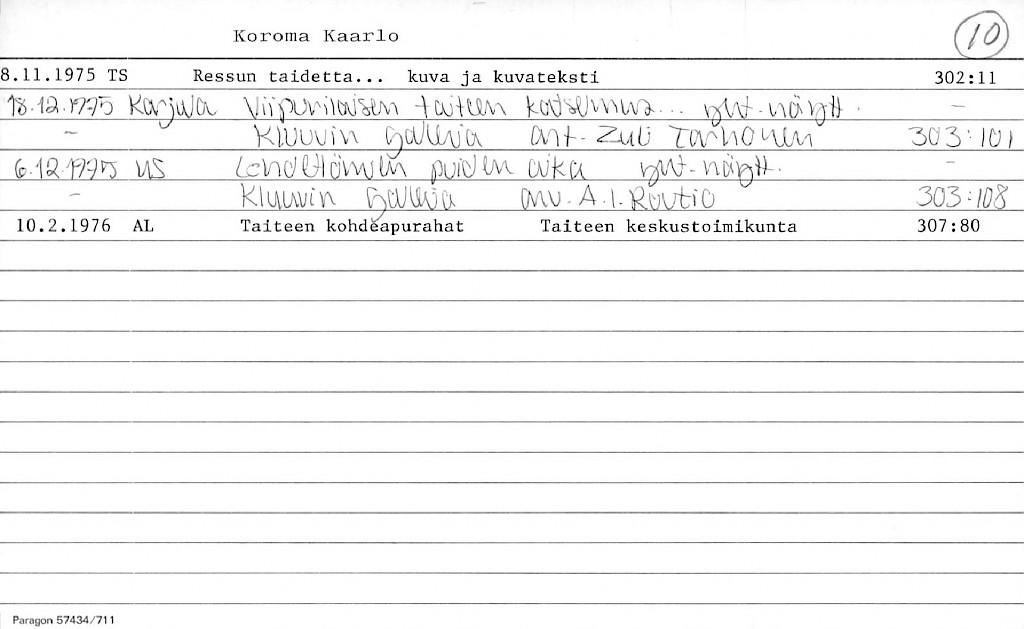 Koroma Kaarlo
10
8.11.1975 TS Ressun taidetta... kuva ja kuvateksti 302:11
18.12.1975 Karjala Viipurilaisen taiteen katselmus... yht.näytt. –
– Kluuvin Galleria art. Zuli Tarhonen 303:101
6.12.1975 US Lehdettömien puiden aika yht.näytt. –
– Kluuvin Galleria arv. A.I. Routio 303:108
10.2.1976 AL Taiteen kohdeapurahat Taiteen keskustoimikunta 307:80
Paragon 57434/711